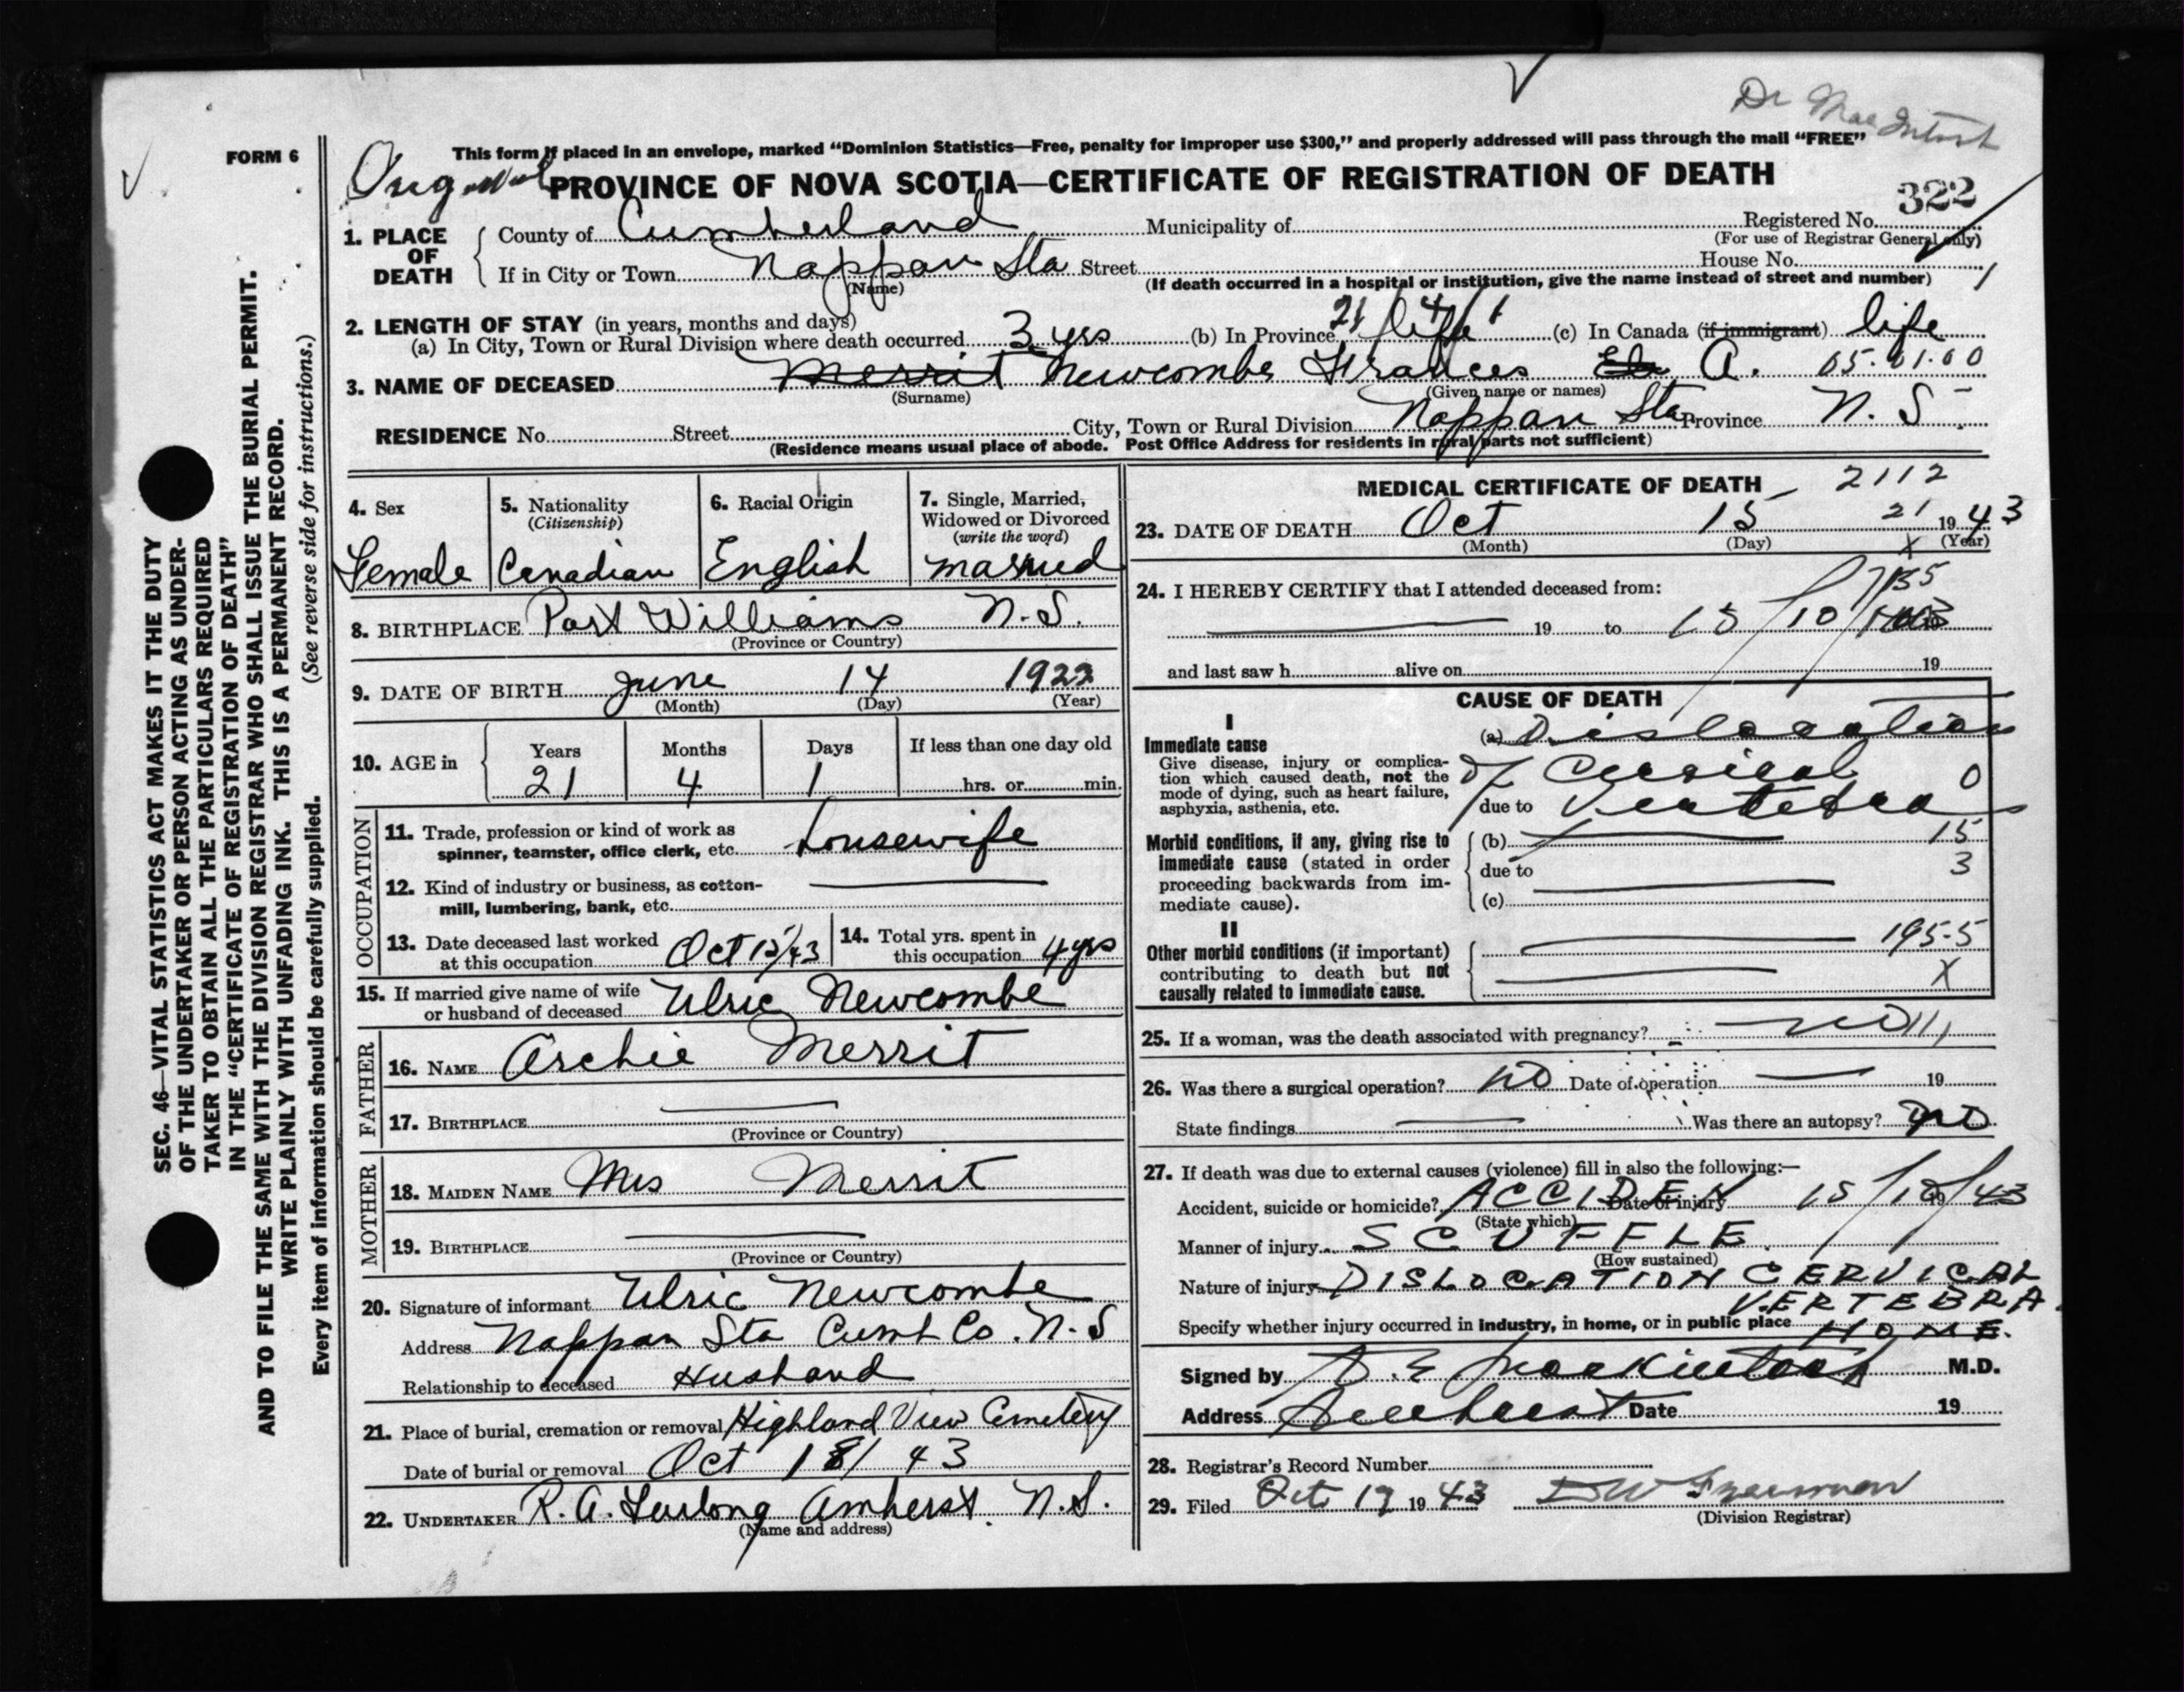 Dr MacIntosh
FORM 6
This form if placed in an envelope, marked “Dominion Statistics—Free, penalty for improper use $300,” and properly addressed will pass through the mail “FREE”
PROVINCE OF NOVA SCOTIA—CERTIFICATE OF REGISTRATION OF DEATH
322
1. PLACE OF DEATH
County of Cumberland Municipality of Registered No.
(For use of Registrar General only)
If in City or Town Nappan Sta Street House No.
(Name) (If death occurred in a hospital or institution, give the name instead of street and number)
2. LENGTH OF STAY (in years, months and days) 21/4/1
(a) In City, Town or Rural Division where death occurred 3 yrs (b) In Province life (c) In Canada (if immigrant) life
3. NAME OF DECEASED Merrit Newcombe Frances A. 05.01.00
(Surname) (Given name or names)
RESIDENCE No. Street City, Town or Rural Division Nappan Sta Province N. S
(Residence means usual place of abode. Post Office Address for residents in rural parts not sufficient)
4. Sex
Female
5. Nationality
(Citizenship)
Canadian
6. Racial Origin
English
7. Single, Married,
Widowed or Divorced
(write the word)
married
8. BIRTHPLACE Port Williams N.S.
(Province or Country)
9. DATE OF BIRTH June 14 1922
(Month) (Day) (Year)
10. AGE in
Years Months Days If less than one day old
21 4 1 hrs. or min.
OCCUPATION
11. Trade, profession or kind of work as
spinner, teamster, office clerk, etc. housewife
12. Kind of industry or business, as cotton-
mill, lumbering, bank, etc.
13. Date deceased last worked
at this occupation Oct 15/43
14. Total yrs. spent in
this occupation 4 yrs
15. If married give name of wife
or husband of deceased Ulric Newcombe
FATHER
16. NAME Archie Merrit
17. BIRTHPLACE
(Province or Country)
MOTHER
18. MAIDEN NAME Mrs Merrit
19. BIRTHPLACE
(Province or Country)
20. Signature of informant Ulric Newcombe
Address Nappan Sta Cumb Co. N.S
Relationship to deceased Husband
21. Place of burial, cremation or removal Highland View Cemetery
Date of burial or removal Oct 18/43
22. UNDERTAKER R. A. Furlong Amherst. N.S.
(Name and address)
MEDICAL CERTIFICATE OF DEATH 2112
21
23. DATE OF DEATH Oct 15 1943
(Month) (Day) (Year)
X
24. I HEREBY CERTIFY that I attended deceased from:
19 to 15/10/
and last saw h alive on 19
CAUSE OF DEATH
I
Immediate cause
Give disease, injury or complica-
tion which caused death, not the
mode of dying, such as heart failure,
asphyxia, asthenia, etc.
(a) Dislocation
of Cervical 0
due to Vertebra
Morbid conditions, if any, giving rise to
immediate cause (stated in order
proceeding backwards from im-
mediate cause).
(b) 15
due to 3
(c)
II
Other morbid conditions (if important)
contributing to death but not
causally related to immediate cause.
195-5
X
25. If a woman, was the death associated with pregnancy? no
26. Was there a surgical operation? no Date of operation 19
State findings Was there an autopsy? no
27. If death was due to external causes (violence) fill in also the following:—
Accident, suicide or homicide? ACCIDEN Date of injury 15/10/43
(State which)
Manner of injury SCUFFLE
(How sustained)
Nature of injury DISLOCATION CERVICAL
VERTEBRA.
Specify whether injury occurred in industry, in home, or in public place HOME.
Signed by D. E Mackintosh M.D.
Address Amherst Date 19
28. Registrar's Record Number
29. Filed Oct 19 1943 Freeman
(Division Registrar)
SEC. 46—VITAL STATISTICS ACT MAKES IT THE DUTY
OF THE UNDERTAKER OR PERSON ACTING AS UNDER-
TAKER TO OBTAIN ALL THE PARTICULARS REQUIRED
IN THE “CERTIFICATE OF REGISTRATION OF DEATH”
AND TO FILE THE SAME WITH THE DIVISION REGISTRAR WHO SHALL ISSUE THE BURIAL PERMIT.
WRITE PLAINLY WITH UNFADING INK. THIS IS A PERMANENT RECORD.
Every item of information should be carefully supplied. (See reverse side for instructions.)